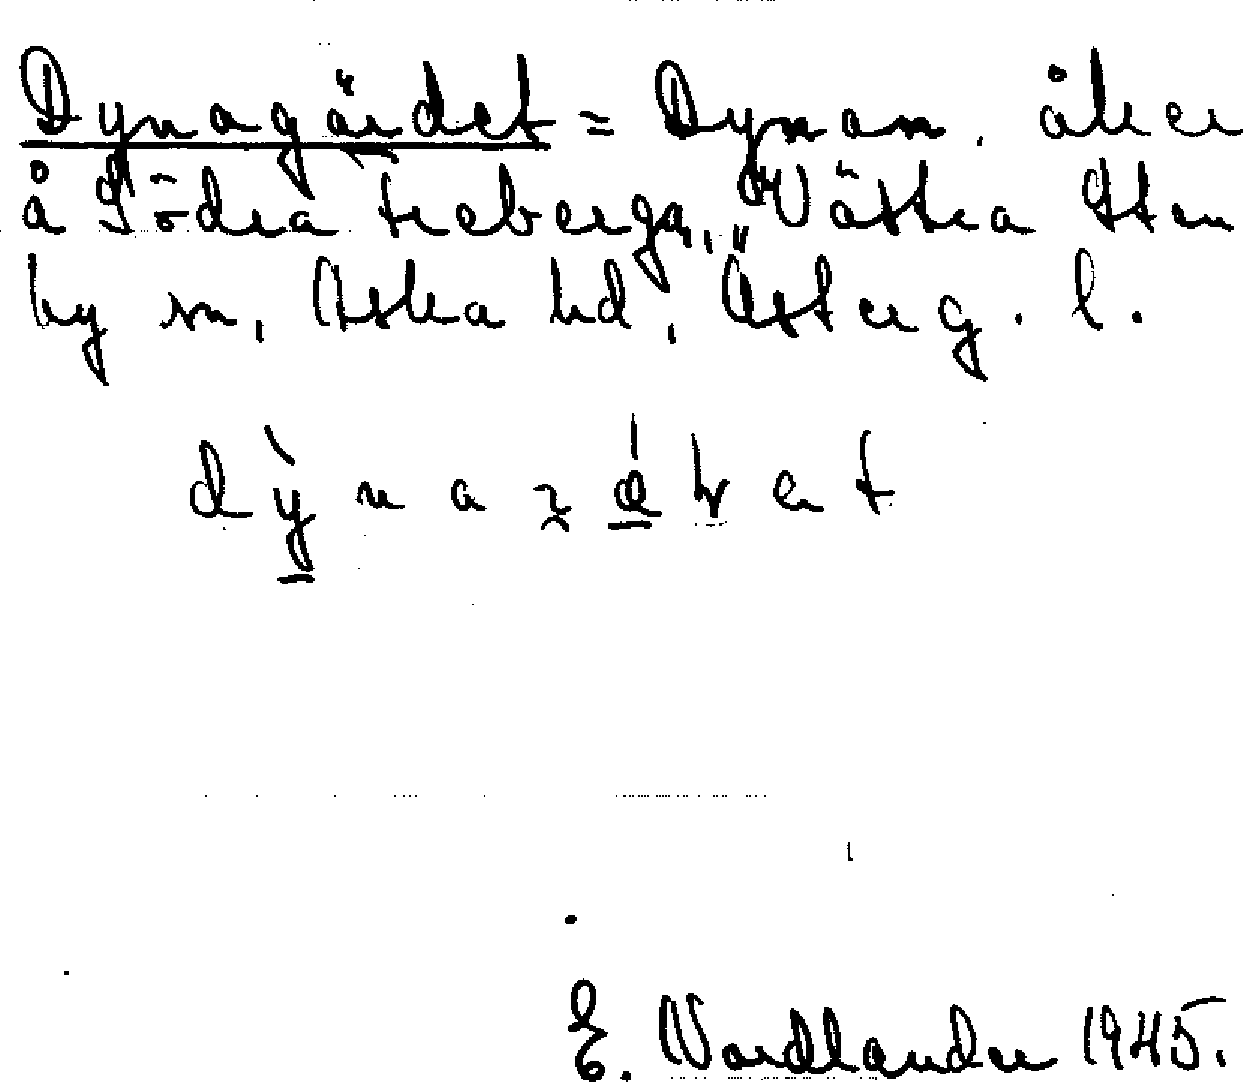 Dynagärdet = Dynan. åker
å Södra Freberga, Västra Sten
by sn, Aska hd, Österg. l.
E. Nordlander 1945.